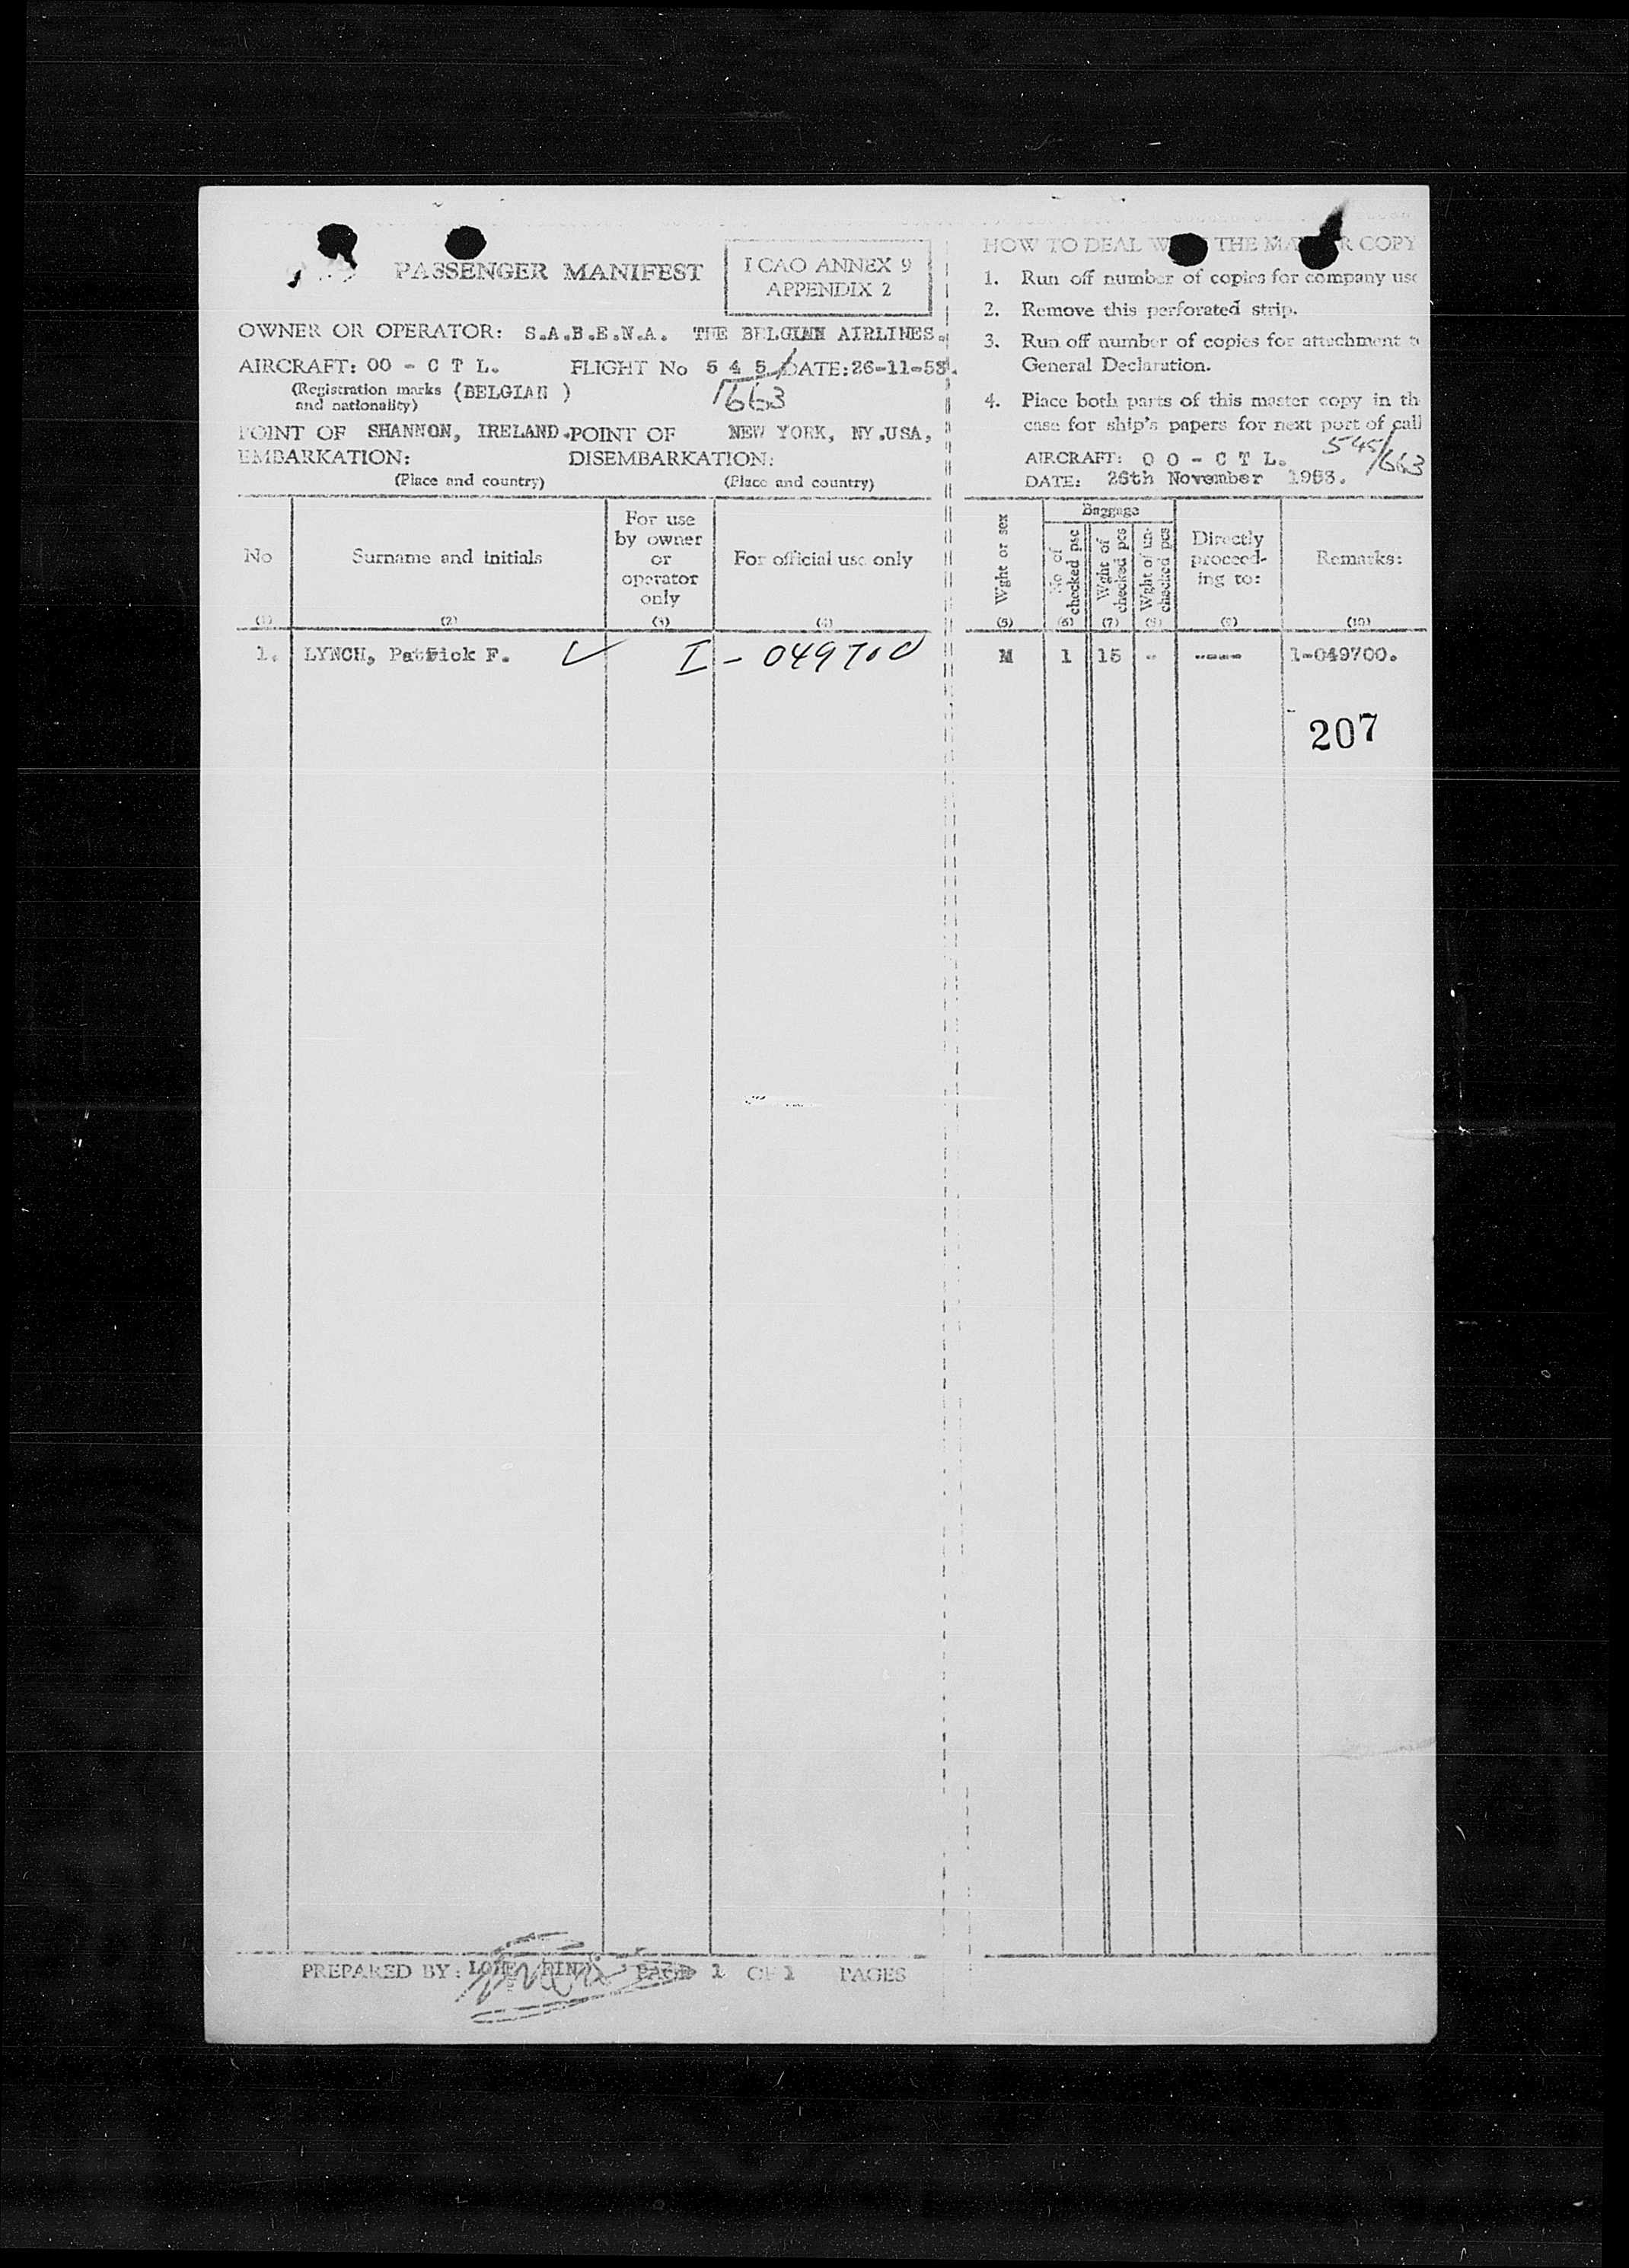 PASSENGER MANIFEST
I CAO ANNEX 9
APPENDIX 2
OWNER OR OPERATOR: S.A.B.E.N.A. THE BELGIAN AIRLINES.
AIRCRAFT: OO - C T L. FLIGHT No 5 4 5 / DATE: 26-11-53.
(Registration marks and nationality) (BELGIAN )
1663
POINT OF EMBARKATION: SHANNON, IRELAND. POINT OF DISEMBARKATION: NEW YORK, NY.USA,
(Place and country) (Place and country)
No
Surname and initials
For use by owner or operator only
For official use only
(1) (2) (3) (4)
1. LYNCH, Patrick F. ✓ I - 049700
PREPARED BY: PAGE 1 OF 1 PAGES
HOW TO DEAL THE COPY
1. Run off number of copies for company use
2. Remove this perforated strip.
3. Run off number of copies for attachment
General Declaration.
4. Place both parts of this master copy in th
case for ship's papers for next port of call
545/663
AIRCRAFT: O O - C T L.
DATE: 26th November 1953.
Wght or sex
Baggage
No of checked psc
Wght of checked pcs
Wght of un-checked pcs
Directly proceed-ing to:
Remarks:
(5) (6) (7) (8) (9) (10)
M 1 15 - ---- 1-049700.
207